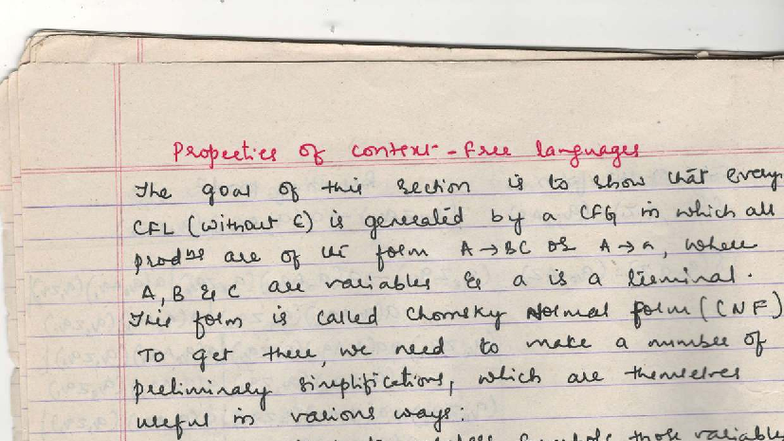 Properties of context-free languages
The goal of this section is to show that every
CFL (without ε) is generated by a CFG in which all
prodns are of the form A → BC or A → a, where
A, B & C are variables & a is a terminal.
This form is called Chomsky Normal form (CNF)
To get there, we need to make a number of
preliminary simplifications, which are themselves
useful in various ways:
those variable